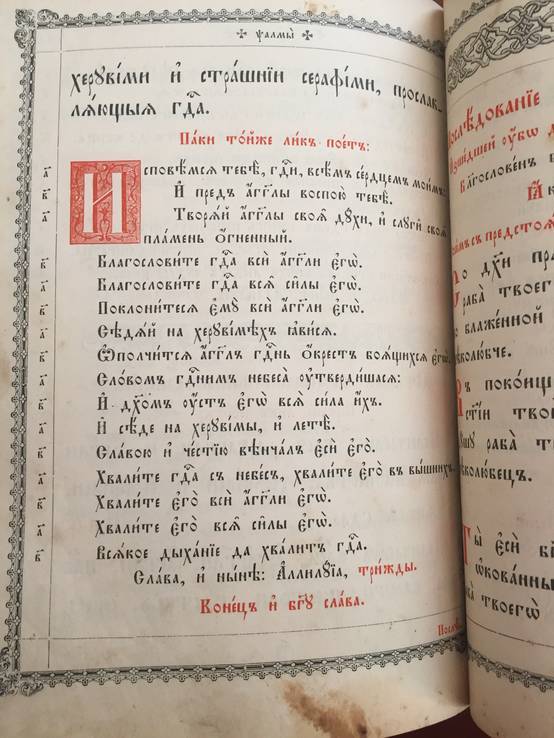 ✠ ѱалмы̀ ✠
херꙋві́ми и҆ стра́шнїи серафі́ми, прославлѧ́ющыѧ гдⷭ҇а.
Па́ки то́йже ли́къ пое́тъ:
а҃ И҆сповѣ́мсѧ тебѣ̀, гдⷭ҇и, всѣ́мъ се́рдцемъ мои́мъ:
в҃ И҆ пред̾ а҆́гг҃лы воспою̀ тебѣ̀.
а҃ Творѧ́й а҆́гг҃лы своѧ̑ дꙋ́хи, и҆ слꙋги̑ своѧ̑
пла́мень ѻ҆́гненный.
в҃ Благослови́те гдⷭ҇а всѝ а҆́гг҃ли є҆гѡ̀.
а҃ Благослови́те гдⷭ҇а всѧ̑ си̑лы є҆гѡ̀.
в҃ Поклони́тесѧ є҆мꙋ̀ всѝ а҆́гг҃ли є҆гѡ̀.
а҃ Сѣдѧ́й на херꙋві́мѣхъ ꙗ҆ви́сѧ.
в҃ Ѡ҆полчи́тсѧ а҆́гг҃лъ гдⷭ҇нь ѻ҆́крестъ боѧ́щихсѧ є҆гѡ̀.
а҃ Сло́вомъ гдⷭ҇нимъ небеса̀ ᲂу҆тверди́шасѧ:
в҃ И҆ дх҃омъ ᲂу҆́стъ є҆гѡ̀ всѧ̀ си́ла и҆́хъ.
а҃ И҆ сѣ́де на херꙋві́мы, и҆ летѣ̀.
в҃ Сла́вою и҆ че́стїю вѣнча́лъ є҆сѝ є҆го̀.
а҃ Хвали́те гдⷭ҇а съ небе́съ, хвали́те є҆го̀ въ вы́шнихъ.
в҃ Хвали́те є҆го̀ всѝ а҆́гг҃ли є҆гѡ̀.
а҃ Хвали́те є҆го̀ всѧ̑ си̑лы є҆гѡ̀.
в҃ Всѧ́кое дыха́нїе да хва́литъ гдⷭ҇а.
Сла́ва, и҆ ны́нѣ: А҆ллилꙋ́їа, три́жды.
Коне́цъ и҆ бг҃ꙋ сла́ва.
Послѣ́дованїе
ᲂу҆́бѡ
Благослове́нъ
дх҃и
раба̀ твоегѡ̀
блаже́нной
Въ поко́ищи
раба̀
Ты̀ є҆сѝ
раба̀ твоегѡ̀